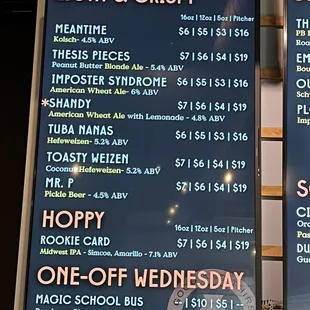 16oz | 12oz | 5oz | Pitcher
MEANTIME $6 | $5 | $3 | $16
Kolsch- 4.5% ABV
THESIS PIECES $7 | $6 | $4 | $19
Peanut Butter Blonde Ale - 5.4% ABV
IMPOSTER SYNDROME $6 | $5 | $3 | $16
American Wheat Ale- 6% ABV
*SHANDY $7 | $6 | $4 | $19
American Wheat Ale with Lemonade - 4.8% ABV
TUBA NANAS $6 | $5 | $3 | $16
Hefeweizen- 5.2% ABV
TOASTY WEIZEN $7 | $6 | $4 | $19
Coconut Hefeweizen- 5.2% ABV
MR. P $7 | $6 | $4 | $19
Pickle Beer - 4.5% ABV
HOPPY 16oz | 12oz | 5oz | Pitcher
ROOKIE CARD $7 | $6 | $4 | $19
Midwest IPA - Simcoe, Amarillo - 7.1% ABV
ONE-OFF WEDNESDAY
MAGIC SCHOOL BUS -- | $10 | $5 | --